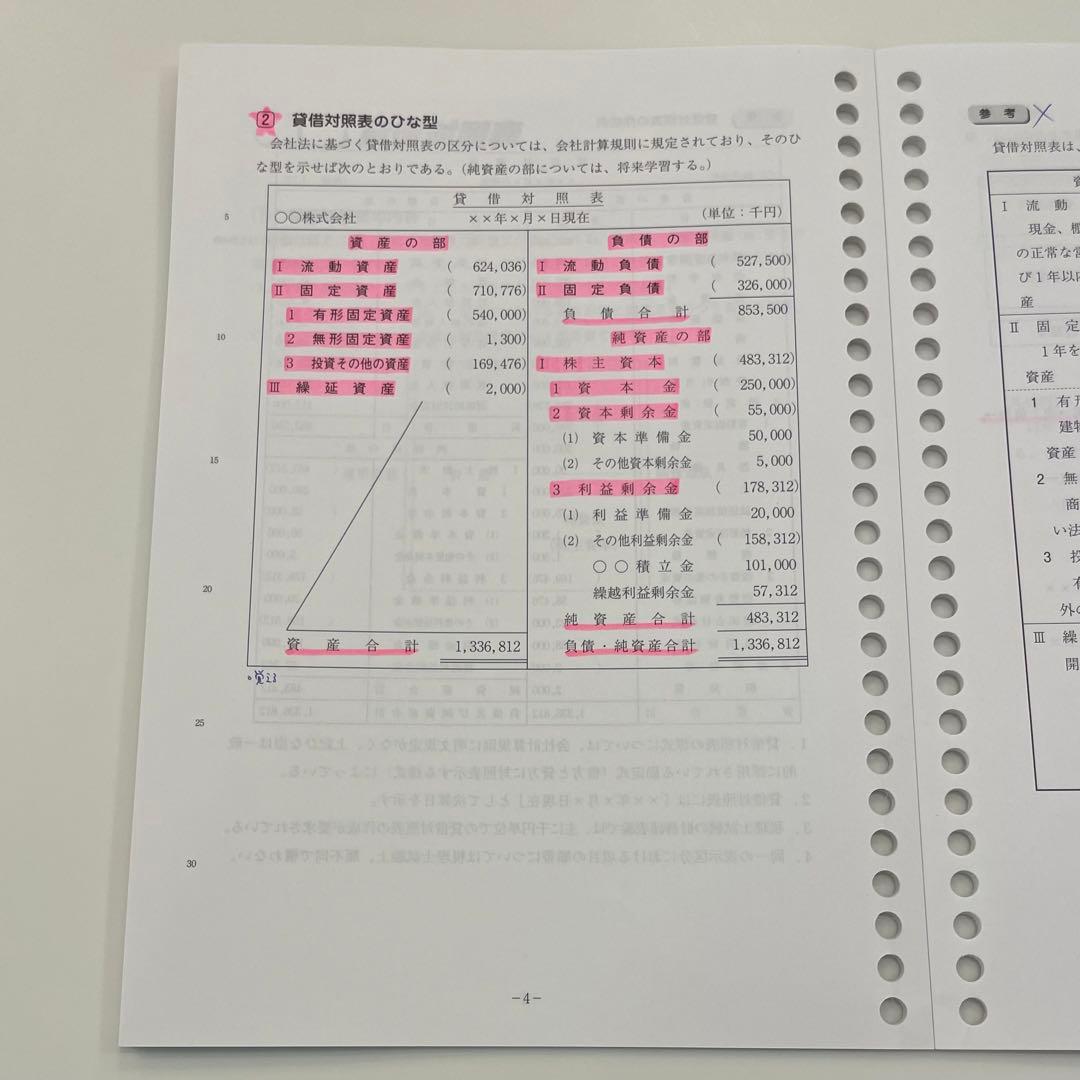 2 貸借対照表のひな型
会社法に基づく貸借対照表の区分については、会社計算規則に規定されており、そのひ
な型を示せば次のとおりである。(純資産の部については、将来学習する。)
貸借対照表
○○株式会社 ××年×月×日現在 (単位:千円)
資産の部
Ⅰ 流動資産 ( 624,036)
Ⅱ 固定資産 ( 710,776)
1 有形固定資産 ( 540,000)
2 無形固定資産 ( 1,300)
3 投資その他の資産 ( 169,476)
Ⅲ 繰延資産 ( 2,000)
資産合計 1,336,812
負債の部
Ⅰ 流動負債 ( 527,500)
Ⅱ 固定負債 ( 326,000)
負債合計 853,500
純資産の部
Ⅰ 株主資本 ( 483,312)
1 資本金 ( 250,000)
2 資本剰余金 ( 55,000)
(1) 資本準備金 50,000
(2) その他資本剰余金 5,000
3 利益剰余金 ( 178,312)
(1) 利益準備金 20,000
(2) その他利益剰余金 ( 158,312)
○○積立金 101,000
繰越利益剰余金 57,312
純資産合計 483,312
負債・純資産合計 1,336,812
覚える
5
10
15
20
25
30
-4-
参考 ×
貸借対照表は、
Ⅰ 流動
現金、棚
の正常な営
び1年以内
産
Ⅱ 固定
1年を
資産
1 有形
建物
資産
2 無
商
い法
3 投
有
外の
Ⅲ 繰
開